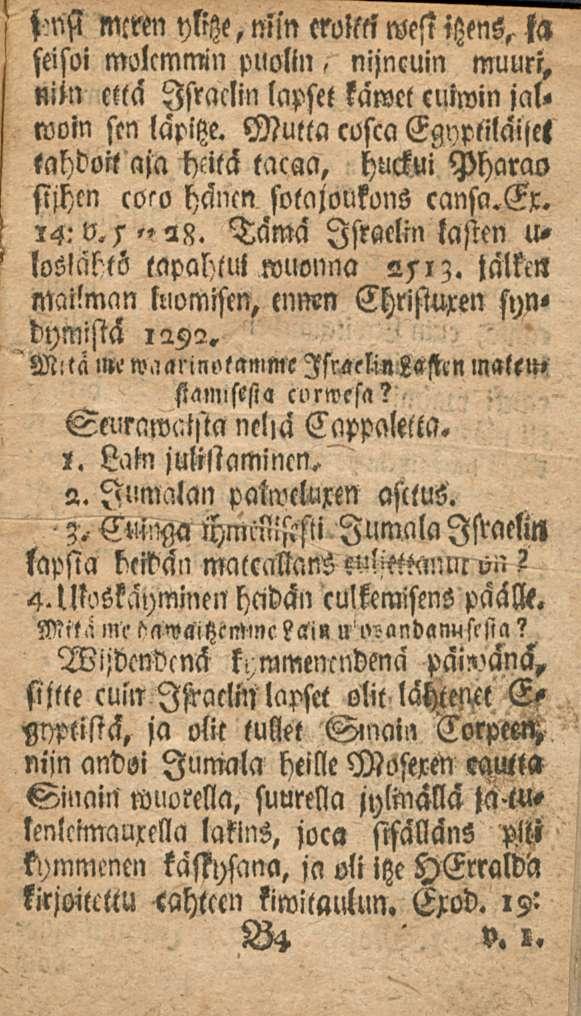 meren ylitze, niin eroitti west itzens, ja
seisoi molemmin puolin, nijncuin muuri,
niin että Israelin lapset käwet cuiwin jal-
woin sen läpitze. Mutta cosca Egyptiläiset
tahdoit aja heitä tacaa, huckui Pharao
sijhen coco hänen sotajoukons cansa. Ex.
14: v. 5 " 28. Tämä Israelin lasten u-
loslähtö tapahtui wuonna 2513. jälken
mailman luomisen, ennen Christuxen syn-
dymistä 1292.
Mitä me waarinotamme Israelin Lasten matcu-
stamisesta corwesa?
Seurawaista neljä Cappaletta.
1. Lain julistaminen.
2. Jumalan palweluxen asetus.
3. Cuinga ihmellisesti Jumala Israelin
lapsia heidän matcallans culjettanut on?
4. Uloskäyminen heidän culkemisens päälle.
Mitä me hawaitzemme Lain ulosandamisesta?
Wijdendenä kymmenendenä päiwänä,
sijtte cuin Israelin lapset olit lähtenet E-
gyptistä, ja olit tullet Sinain Corpeen,
nijn andoi Jumala heille Mosexen cautta
Sinain wuorella, suurella jylinällä ja tu-
lenleimauxella lakins, joca sisälläns piti
kymmenen käskysana, ja oli itze HErralda
kirjoitettu cahteen kiwitaulun. Exod. 19:
B4 v. 1.